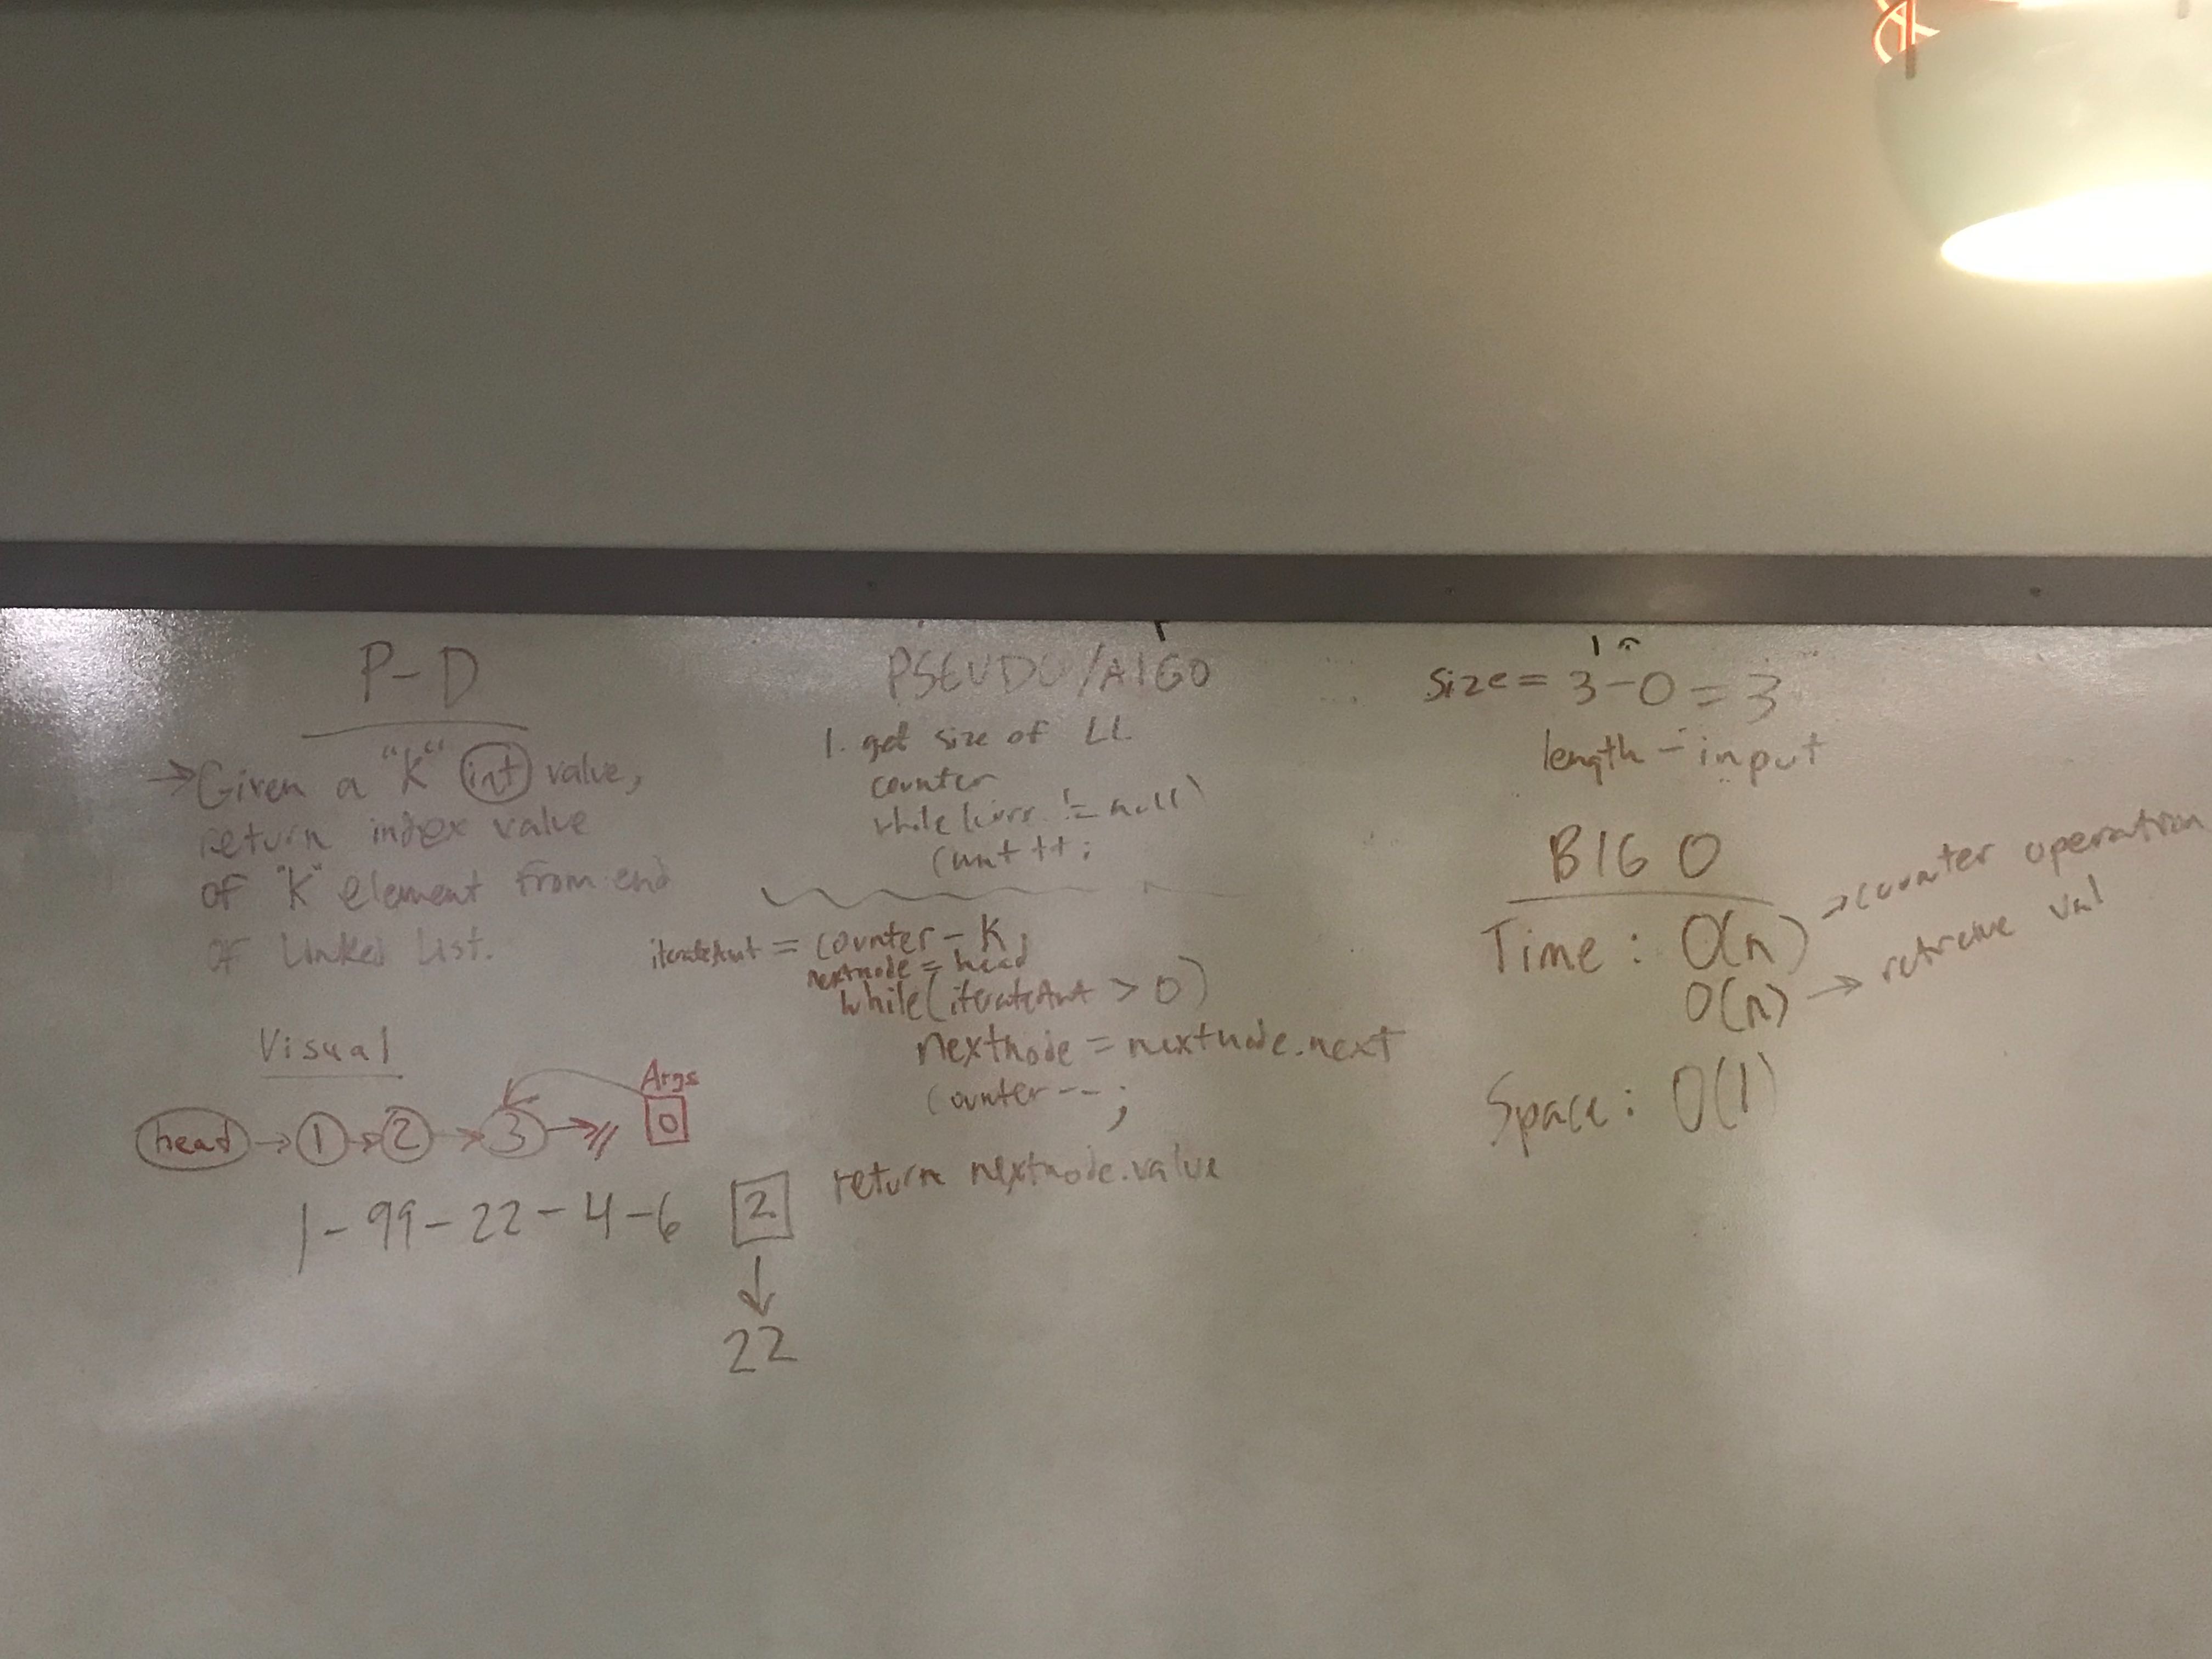 P-D
→Given a "K" int value,
return index value
of "K" element from end
of Linked List.
Visual
head → 1 → 2 → 3 →//
Args
0
1-99-22-4-6 2
↓
22
PSEUDO/AlGO
1. get size of LL
counter
while (curr != null)
count ++;
iterateAmt = counter - K;
nextnode = head
while(iterateAmt > 0)
nextnode = nextnode.next
counter--;
return nextnode.value
size = 3-0=3
length - input
BIG O
Time: O(n) → counter operation
O(n) → retreive val
Space: O(1)